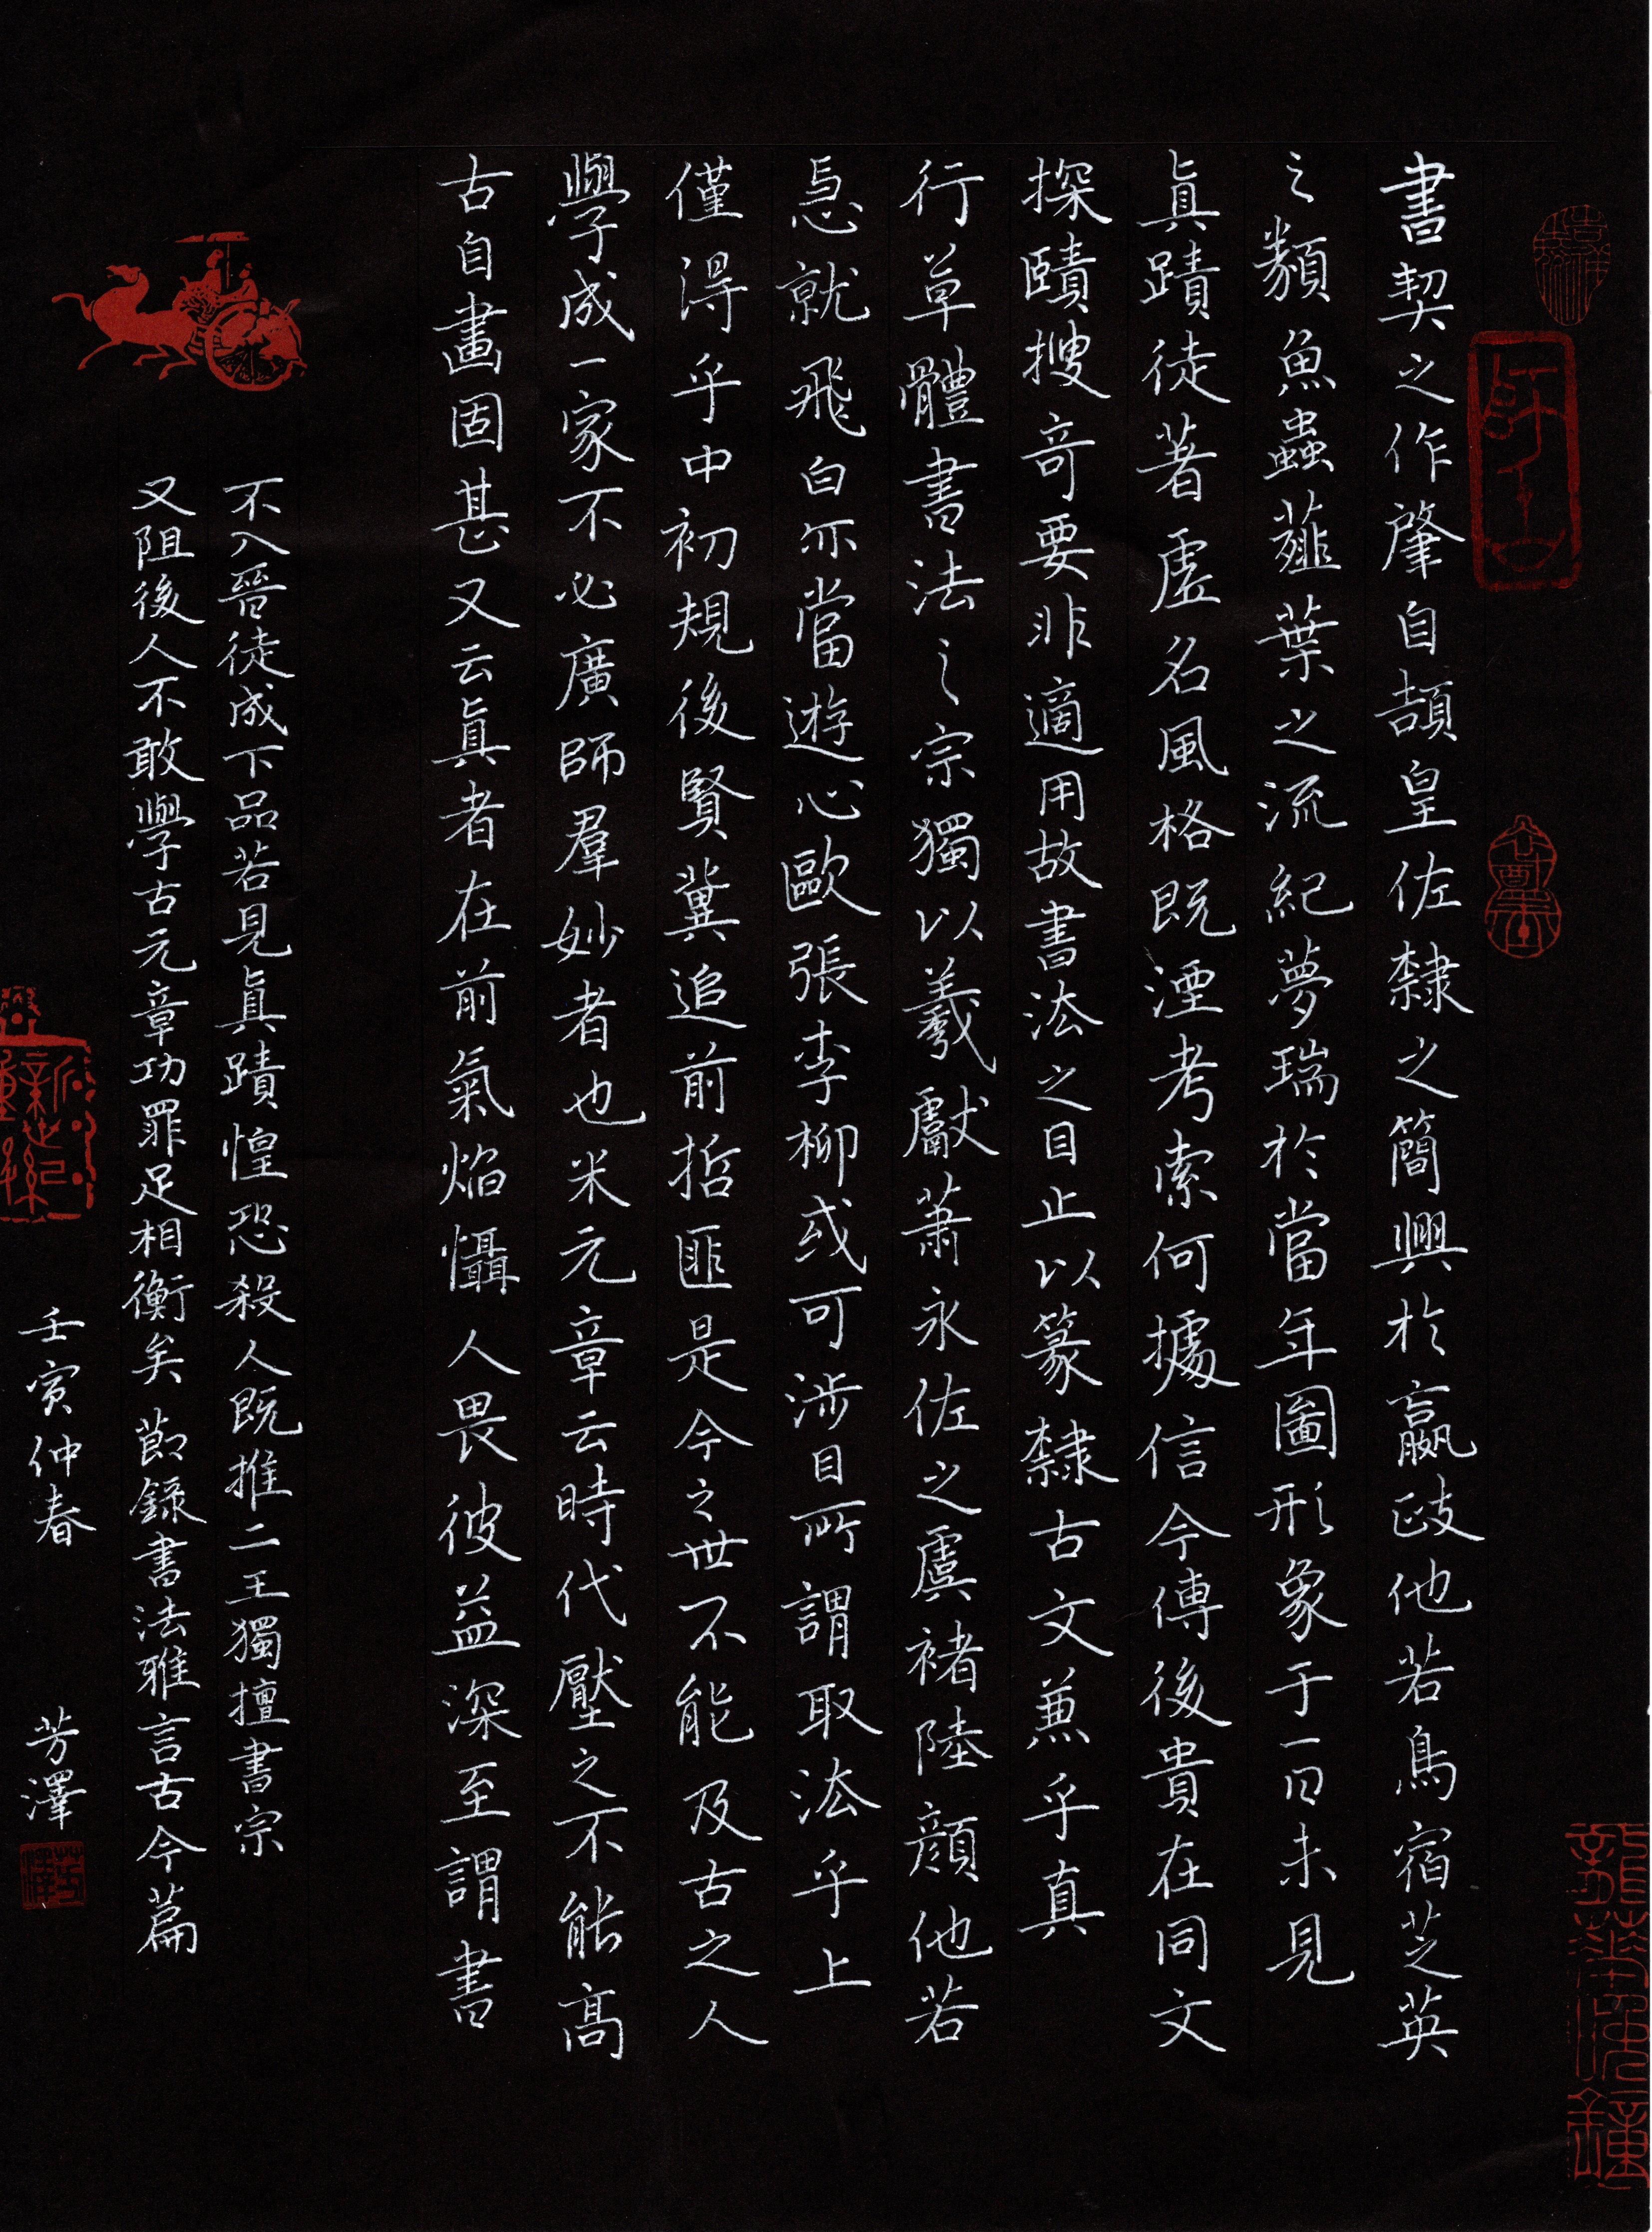 書契之作肇自頡皇佐隸之簡興於嬴政他若鳥宿芝英
之類魚蟲薤葉之流紀夢瑞於當年圖形象于一日未見
真蹟徒著虛名風格既湮考索何據信今傳後貴在同文
探賾搜奇要非適用故書法之目止以篆隸古文兼乎真
行草體書法之宗獨以羲獻蕭永佐之虞褚陸顏他若
急就飛白亦當遊心歐張李柳或可涉目所謂取法乎上
僅得乎中初規後賢冀追前哲匪是今之世不能及古之人
學成一家不必廣師羣妙者也米元章云時代壓之不能高
古自畫固甚又云真者在前氣焰懾人畏彼益深至謂書
不入晉徒成下品若見真蹟惶恐殺人既推二王獨擅書宗
又阻後人不敢學古元章功罪足相衡矣 節錄書法雅言古今篇
壬寅仲春 芳澤